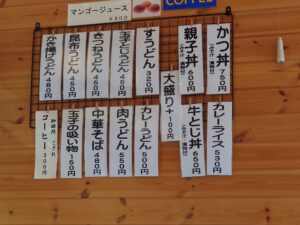 マンゴージュース
¥300
COFFEE
かつ丼 750円
親子丼 650円
すうどん 320円
玉子とじうどん 450円
きつねうどん 450円
昆布うどん 450円
かき揚げうどん 500円
大盛り+100円
カレーライス 530円
牛とじ丼 650円
カレーうどん 500円
肉うどん 550円
中華そば 480円
玉子の吸い物 150円
コーヒー 300円